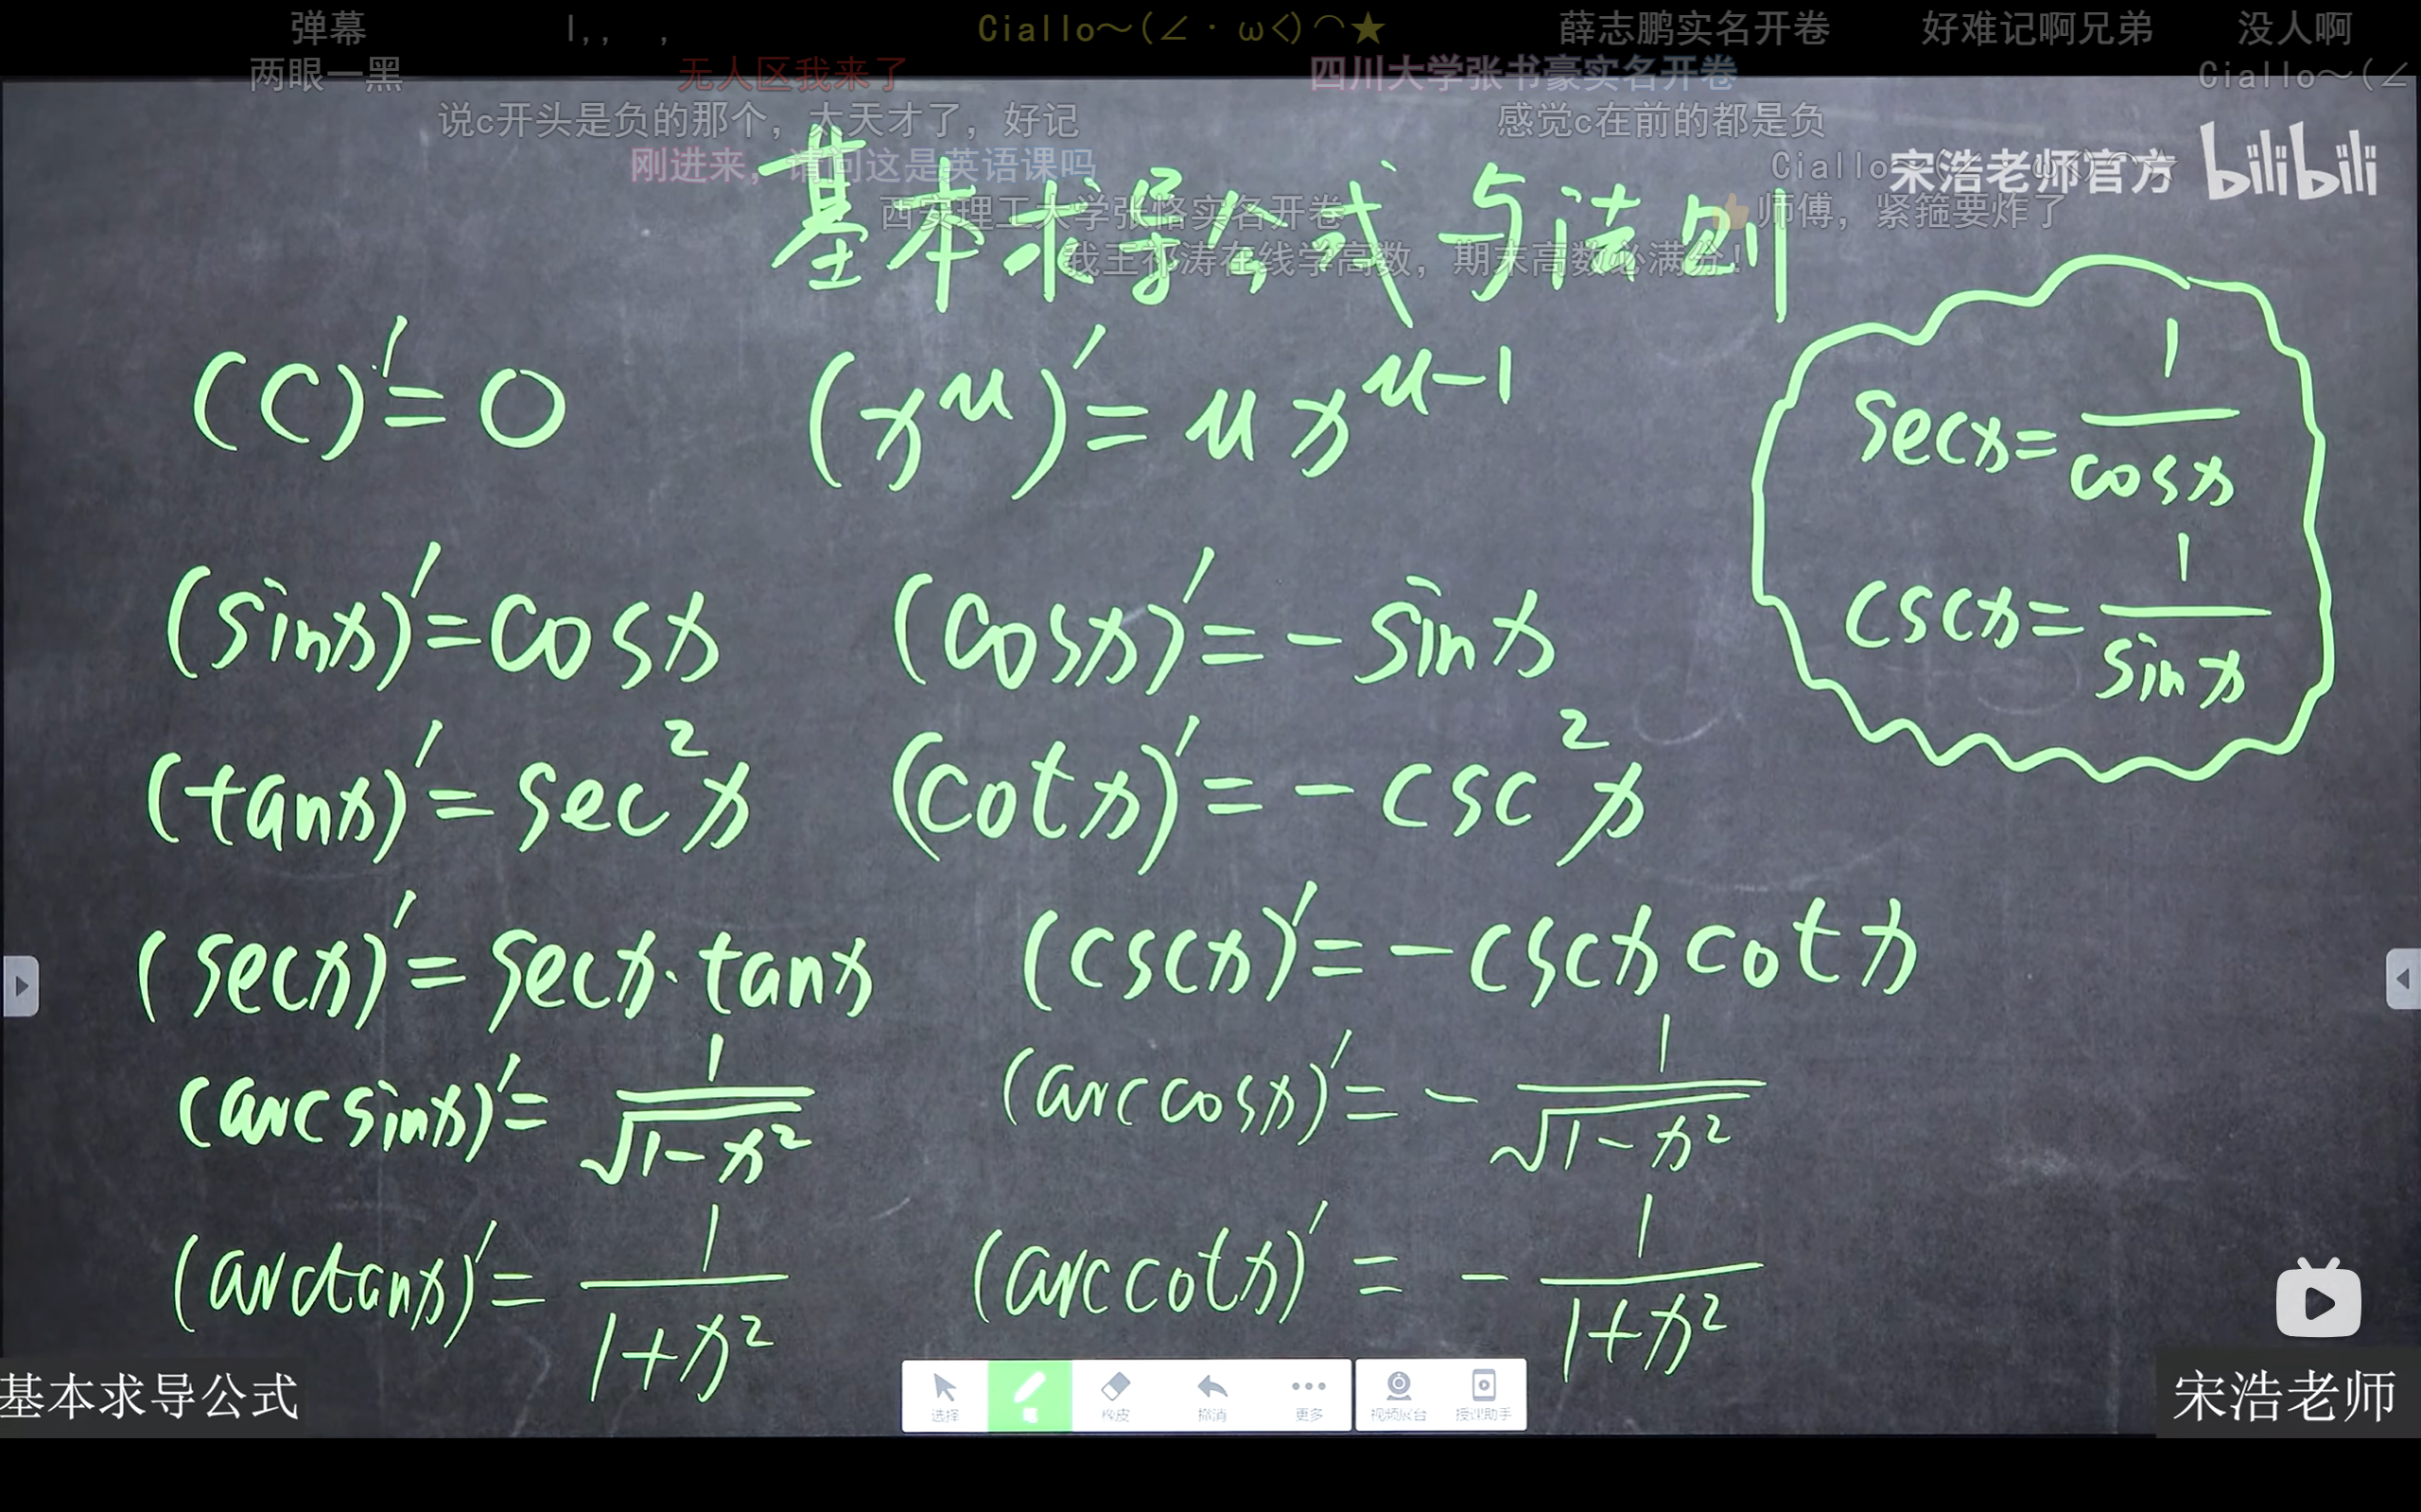 弹幕 l,, , Ciallo～(∠・ω<)⌒★ 薛志鹏实名开卷 好难记啊兄弟 没人啊
两眼一黑 无人区我来了 四川大学张书豪实名开卷 Ciallo～(∠
说c开头是负的那个，大天才了，好记 感觉c在前的都是负
刚进来，请问这是英语课吗 Ciallo 宋浩老师官方 bilibili
西安理工大学张恪实名开卷 师傅，紧箍要炸了
我王祁涛在线学高数，期末高数必满分！
基本求导公式与法则
(C)'=0 (x^μ)'=μx^(μ-1)
secx=1/cosx
cscx=1/sinx
(sinx)'=cosx (cosx)'=-sinx
(tanx)'=sec²x (cotx)'=-csc²x
(secx)'=secx·tanx (cscx)'=-cscxcotx
(arcsinx)'=1/√(1-x²) (arccosx)'=-1/√(1-x²)
(arctanx)'=1/(1+x²) (arccotx)'=-1/(1+x²)
基本求导公式 宋浩老师
选择 笔 橡皮 撤消 更多 视频展台 授课助手